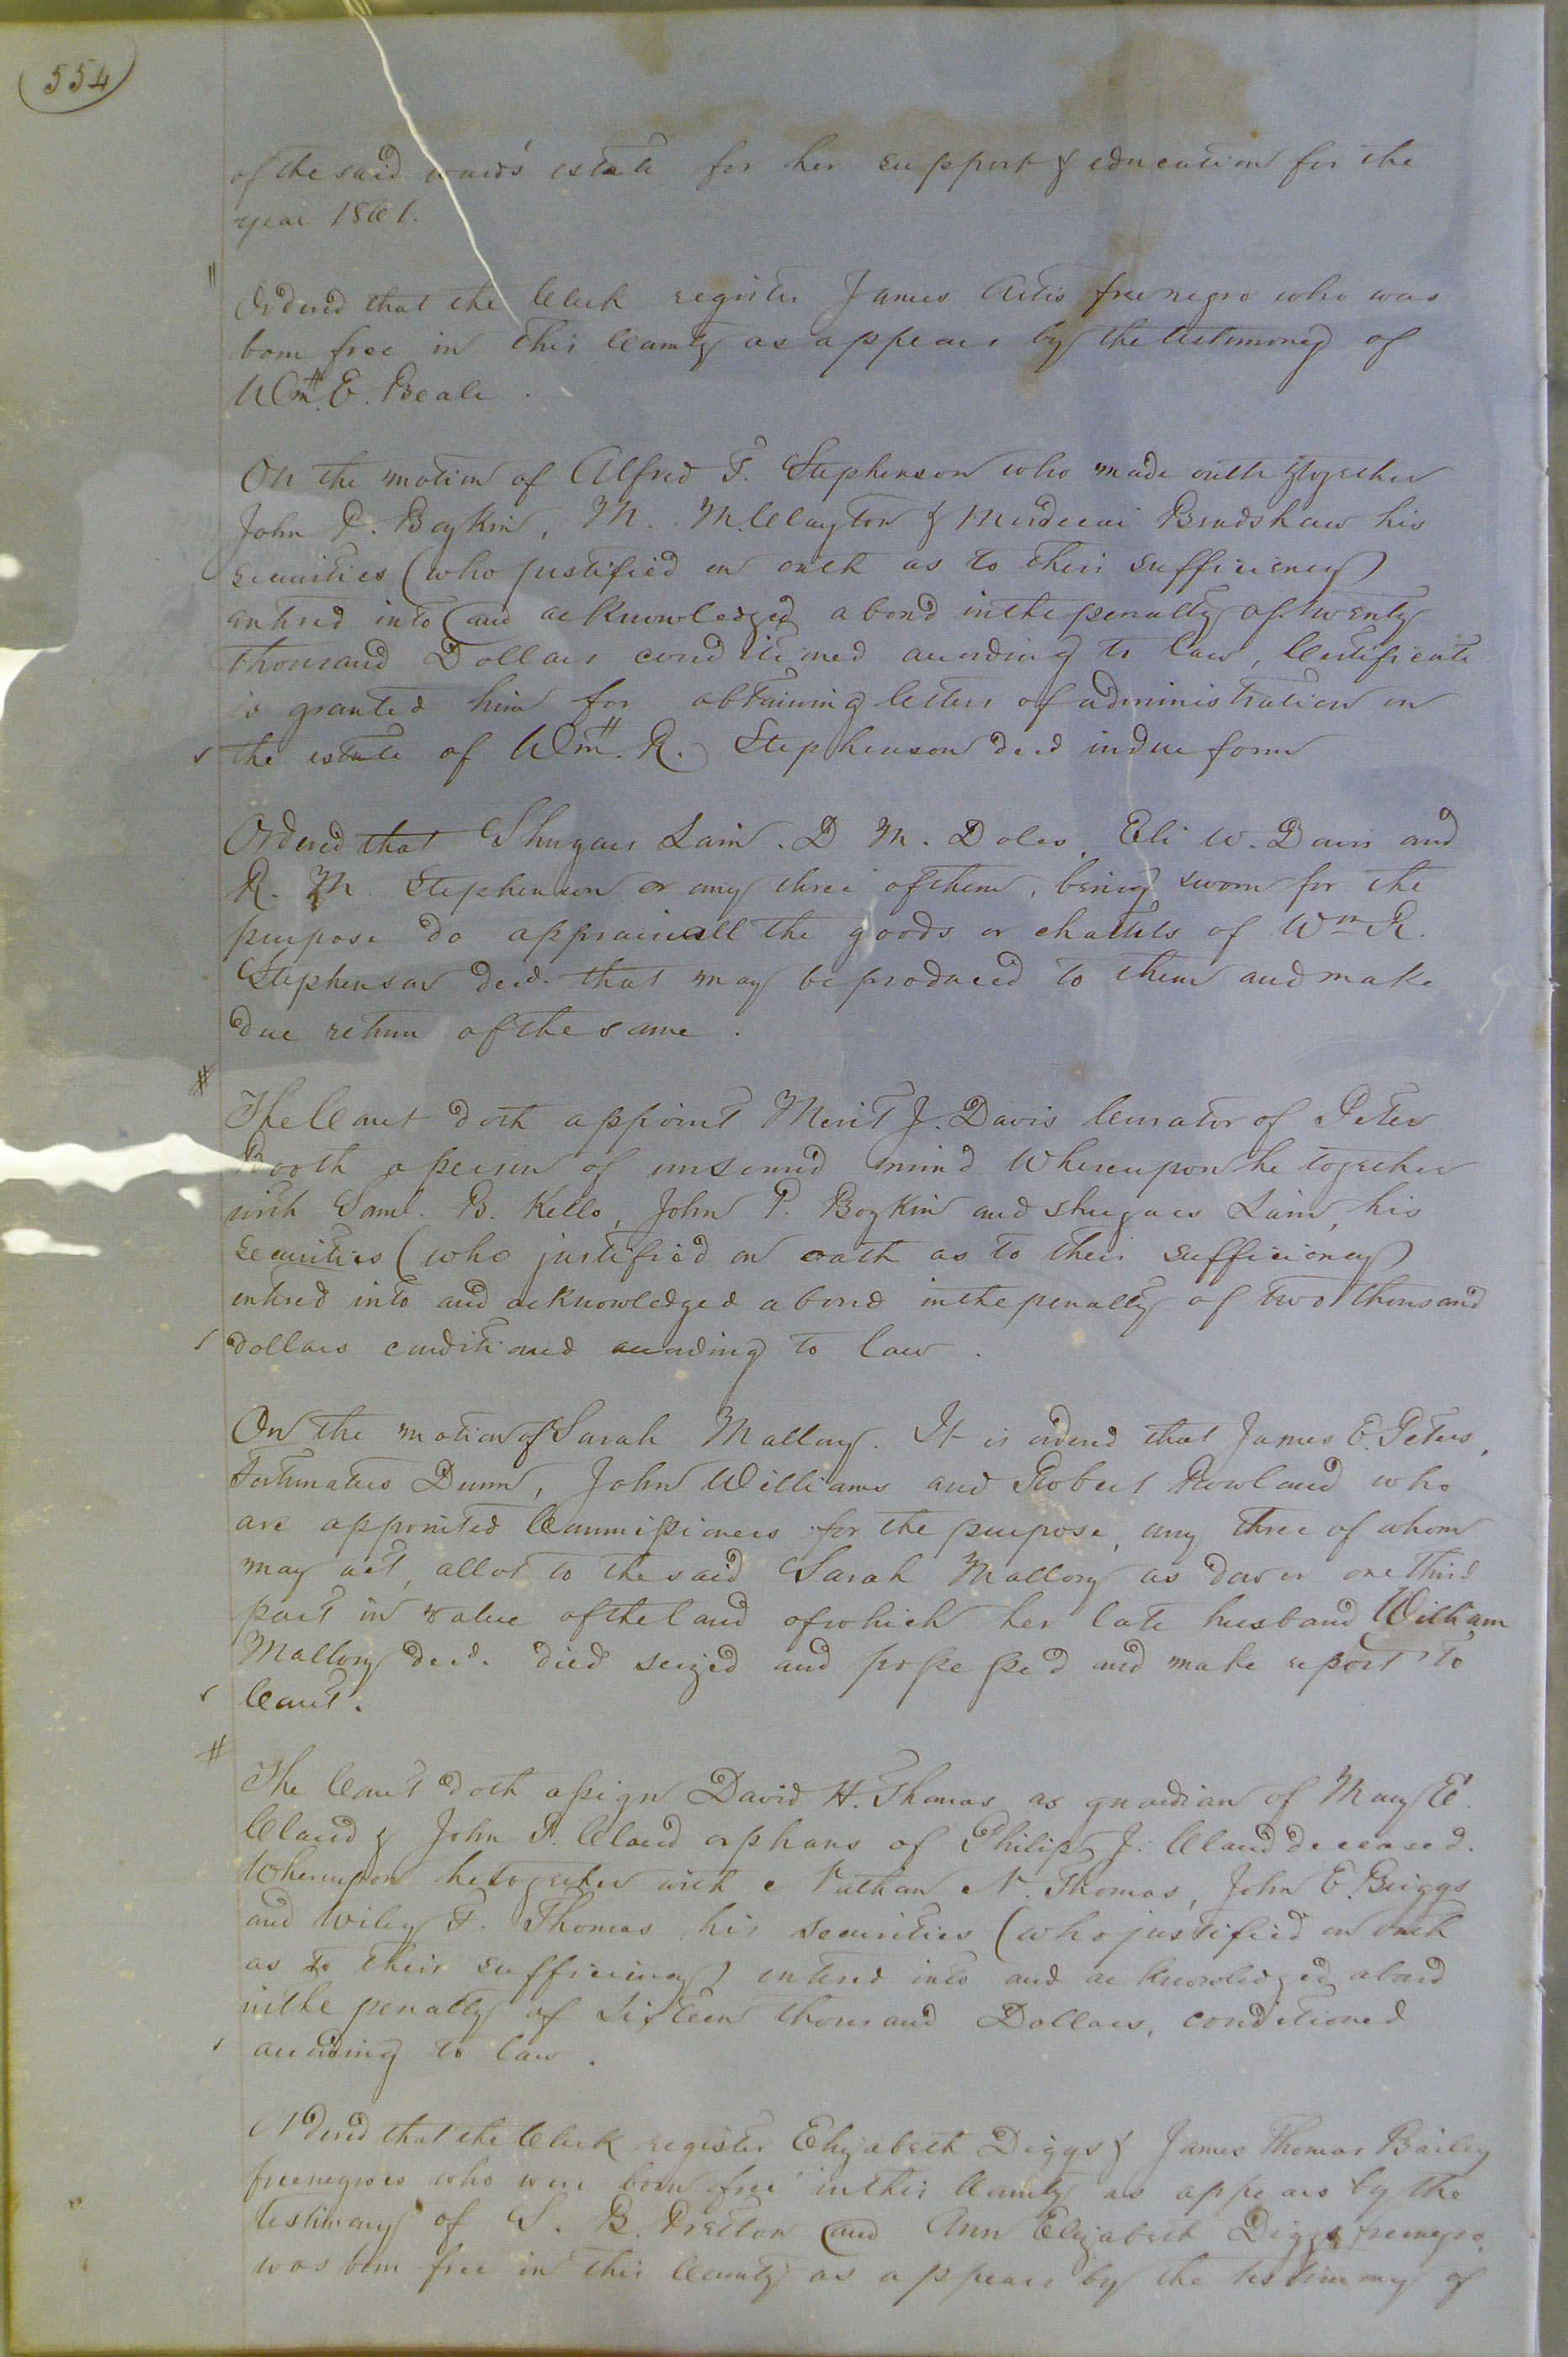 554
of the said ward's estate for her support & education for the
year 1861.
Ordered that the Clerk register James Artis free negro who was
born free in this County as appears by the testimony of
Wm. E. Beale.
On the motion of Alfred T. Stephenson who made oath & together
John P. Boykin, M. M. Clayton & Mordecai Bradshaw his
securities (who justified on oath as to their sufficiency)
entered into and acknowledged a bond in the penalty of twenty
thousand Dollars conditioned according to law, Certificate
is granted him for obtaining letters of administration on
the estate of Wm. R. Stephenson decd in due form
Ordered that Shugars Lain. D. M. Doles, Eli W. Davis and
R. M. Stephenson or any three of them, being sworn for the
purpose do appraise all the goods or chattels of Wm R.
Stephenson decd. that may be produced to them and make
due return of the same.
#
The Court doth appoint Merit J. Davis Curator of Peter
Booth a person of unsound mind Whereupon he together
with Saml. B. Kello, John P. Boykin and Shugars Lain, his
securities (who justified on oath as to their sufficiency)
entered into and acknowledged a bond in the penalty of two thousand
dollars conditioned according to law.
On the motion of Sarah Mallory. It is ordered that James E. Peters,
Fortunatus Dunn, John Williams and Robert Rowland who
are appointed Commissioners for the purpose, any three of whom
may act, allot to the said Sarah Mallory as dower one third
part in value of the land of which her late husband William
Mallory decd. died seized and possessed and make report to
Court.
#
The Court doth assign David H. Thomas as guardian of Mary E.
Claud & John P. Claud orphans of Philip J. Claud deceased.
Whereupon he together with Nathan N. Thomas, John E. Briggs
and Wiley F. Thomas his securities (who justified on oath
as to their sufficiency) entered into and acknowledged a bond
in the penalty of Sixteen thousand Dollars, conditioned
according to law.
Ordered that the Clerk register Elizabeth Diggs & James Thomas Bailey
free negroes who were born free in this County as appears by the
testimony of S. B. Pretlow and Ann Elizabeth Diggs free negro,
was born free in this County as appears by the testimony of